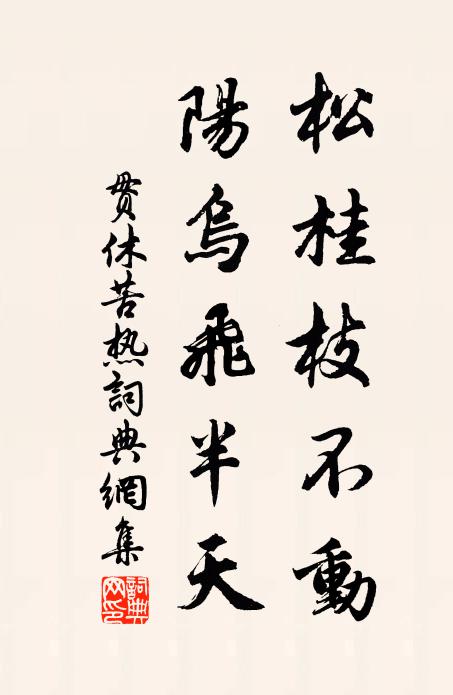 松桂枝不動
陽烏飛半天
貫休苦热詞典網集
詞典网印